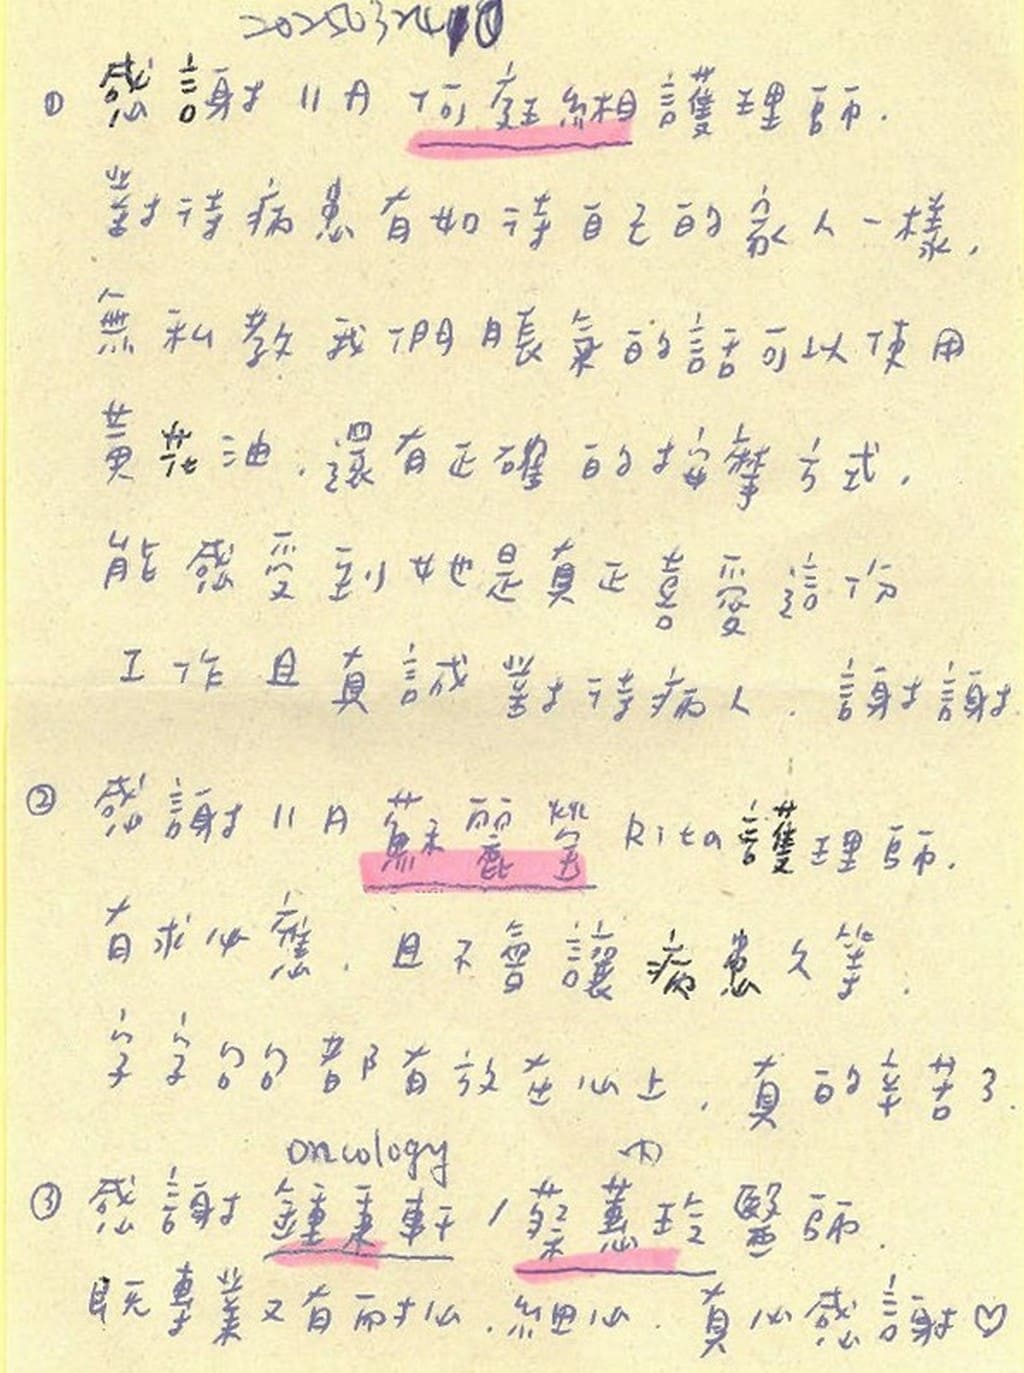 ① 感謝11A 何庭緗護理師.
對待病患有如待自己的家人一樣,
無私教我們脹氣的話可以使用
黃花油.還有正確的按摩方式,
能感受到她是真正喜愛這份
工作且真誠對待病人.謝謝
② 感謝11A 蘇麗瑩 Rita護理師.
有求必應.且不會讓病患久等.
字字句句都有放在心上,真的辛苦了.
oncology 內
③ 感謝鍾秉軒/蔡蕙玲醫師.
既專業又有耐心.細心.真心感謝♡